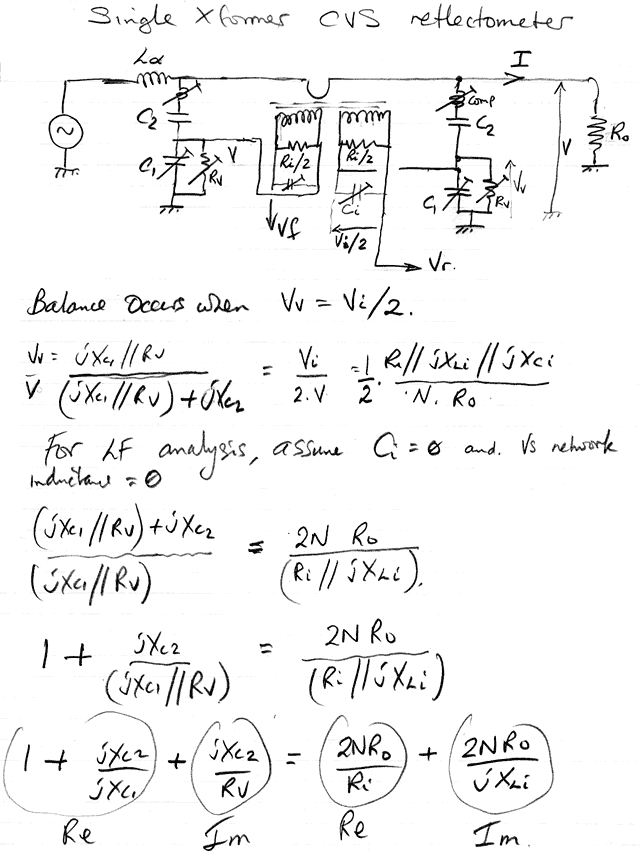 Single Xformer CVS reflectometer
Lα
I
C2
comp
C2
C1
Rv
V
Ri/2
Ri/2
Ci
Vi/2
Vf
Vr.
C1
Rv
Vv
V
Ro
Balance Occurs when Vv = Vi/2.
Vv/V = jXc1//Rv / (jXc1//Rv) + jXc2 = Vi / 2.V = 1/2 . Ri // jXLi // jXci / N. Ro
For LF analysis, assume Ci = 0 and. Vs network
inductance = 0
(jXc1//Rv) + jXc2 / (jXc1//Rv) = 2N Ro / (Ri // jXLi).
1 + jXc2 / (jXc1//Rv) = 2N Ro / (Ri // jXLi)
1 + jXc2 / jXc1 + jXc2 / Rv = 2NRo / Ri + 2NRo / jXLi
Re Im Re Im.